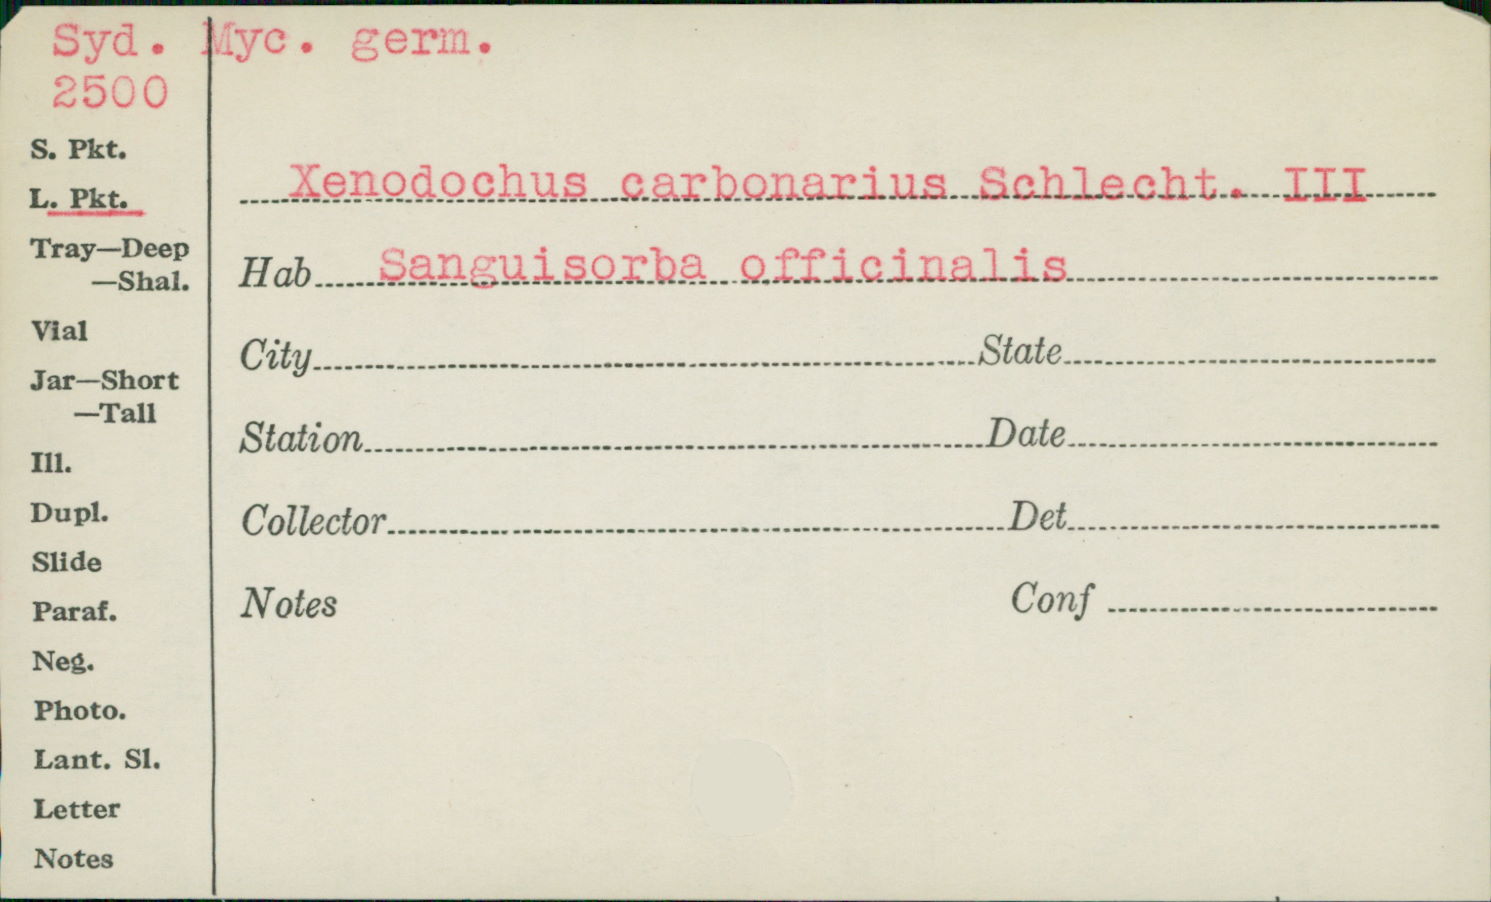 Syd. Myc. germ.
2500
S. Pkt.
L. Pkt.
Tray—Deep
—Shal.
Vial
Jar—Short
—Tall
Ill.
Dupl.
Slide
Paraf.
Neg.
Photo.
Lant. Sl.
Letter
Notes
Xenodochus carbonarius Schlecht. III
Hab Sanguisorba officinalis
City State
Station Date
Collector Det
Notes Conf